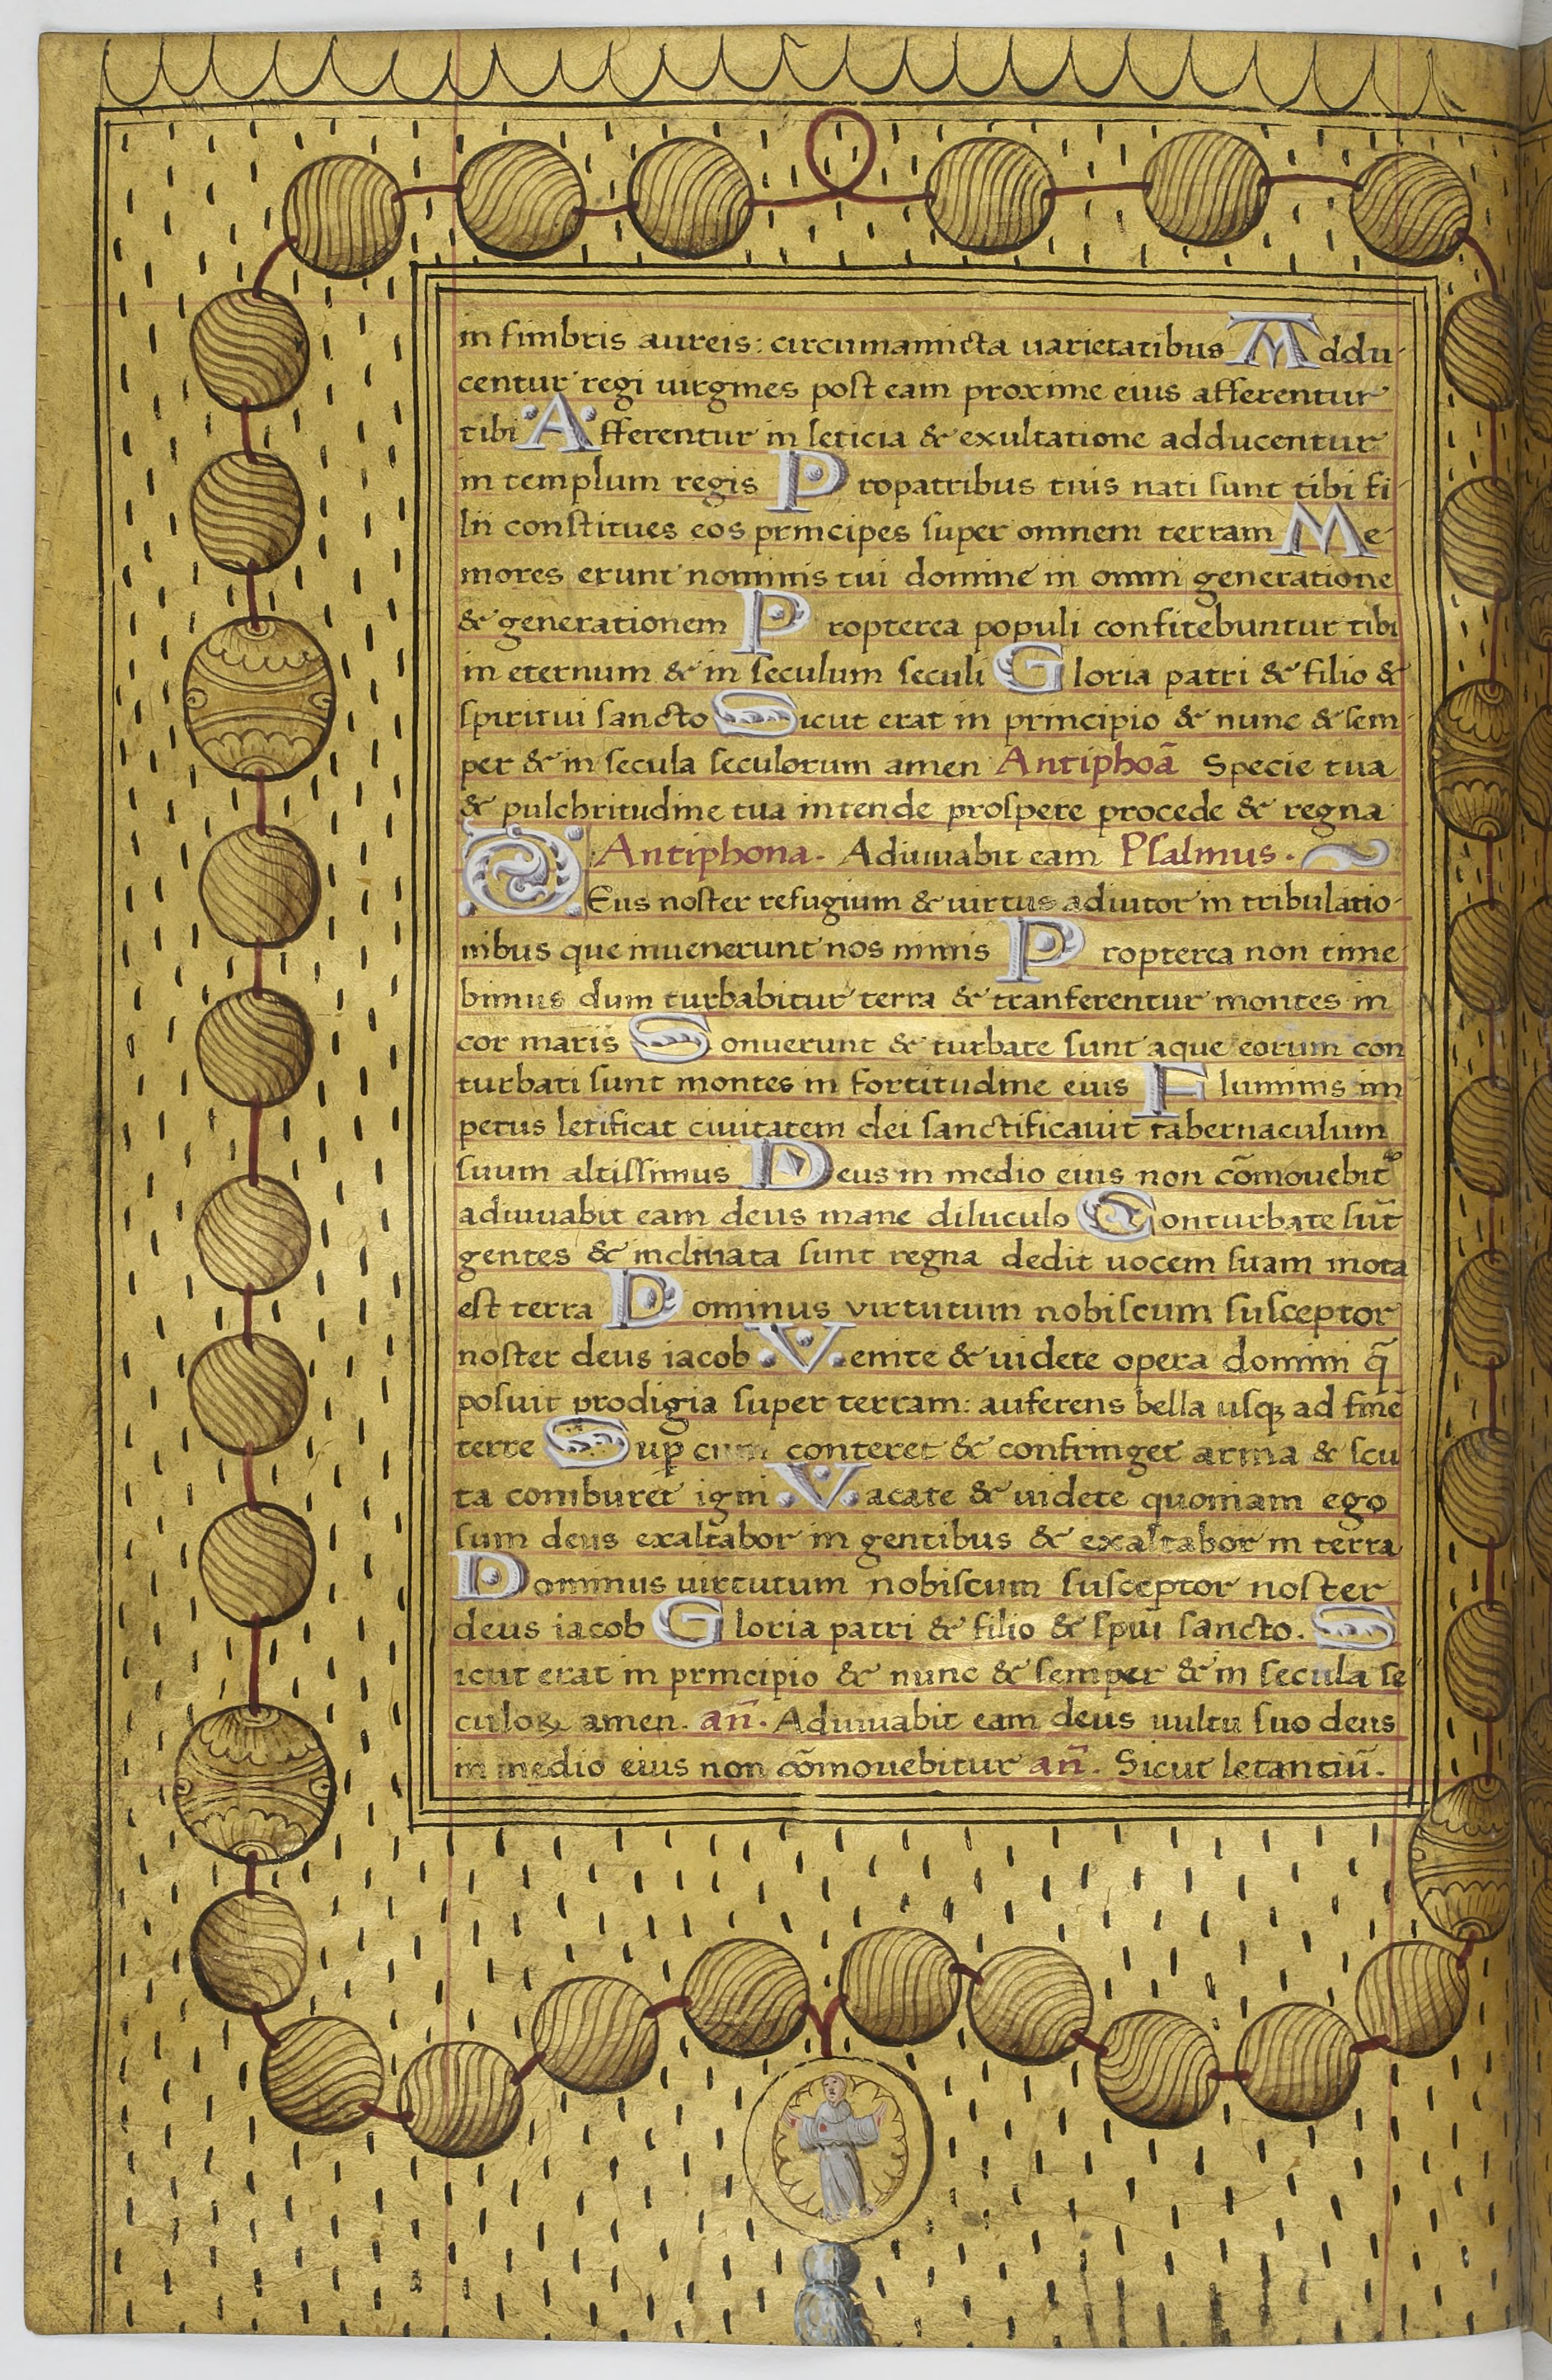 in fimbriis aureis: circumamicta uarietatibus Addu
centur regi uirgines post eam proxime eius afferentur
tibi Afferentur in leticia & exultatione adducentur
in templum regis Propatribus tuis nati sunt tibi fi
lii constitues eos principes super omnem terram Me
mores erunt nominis tui domine in omni generatione
& generationem Propterea populi confitebuntur tibi
in eternum & in seculum seculi Gloria patri & filio &
spiritui sancto Sicut erat in principio & nunc & sem
per & in secula seculorum amen Antiphoā Specie tua
& pulchritudine tua intende prospere procede & regna
Antiphona. Adiuuabit eam Psalmus.
DEus noster refugium & uirtus adiutor in tribulatio
nibus que inuenerunt nos nimis Propterea non time
bimus dum turbabitur terra & tranferentur montes in
cor maris Sonuerunt & turbate sunt aque eorum con
turbati sunt montes in fortitudine eius Fluminis im
petus letificat ciuitatem dei sanctificauit tabernaculum
suum altissimus Deus in medio eius non cōmouebit᷑
adiuuabit eam deus mane diluculo Conturbate sūt
gentes & inclinata sunt regna dedit uocem suam mota
est terra Dominus virtutum nobiscum susceptor
noster deus iacob Venite & uidete opera domini q̄
posuit prodigia super terram: auferens bella usqꝫ ad finē
terre Suꝑ cum conteret & confringet arma & scu
ta comburet igni Vacate & uidete quoniam ego
sum deus exaltabor in gentibus & exaltabor in terra
Dominus uirtutum nobiscum susceptor noster
deus iacob Gloria patri & filio & spūi sancto. S
icut erat in principio & nunc & semper & in secula se
culoꝝ amen. añ. Adiuuabit eam deus uultu suo deus
in medio eius non cōmouebitur añ. Sicut letantiū.